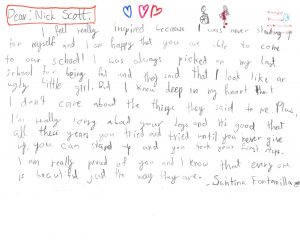 Dear: Nick Scott.
I feel really inspired because I was never standing up
for myself and I am happy that you are able to come
to our school! I was always picked on my last
school for being fat and they said that I look like an
ugly little girl. But I know deep in my heart that
I don't care about the things they said to me Plus,
I'm really sorry about your legs and its good that
all these years you tried and tried until you never give
up, you can stand up and you took your first steps.
I am really proud of you and I know that every one
is beautiful just the way they are.
- Santina Fontanilla